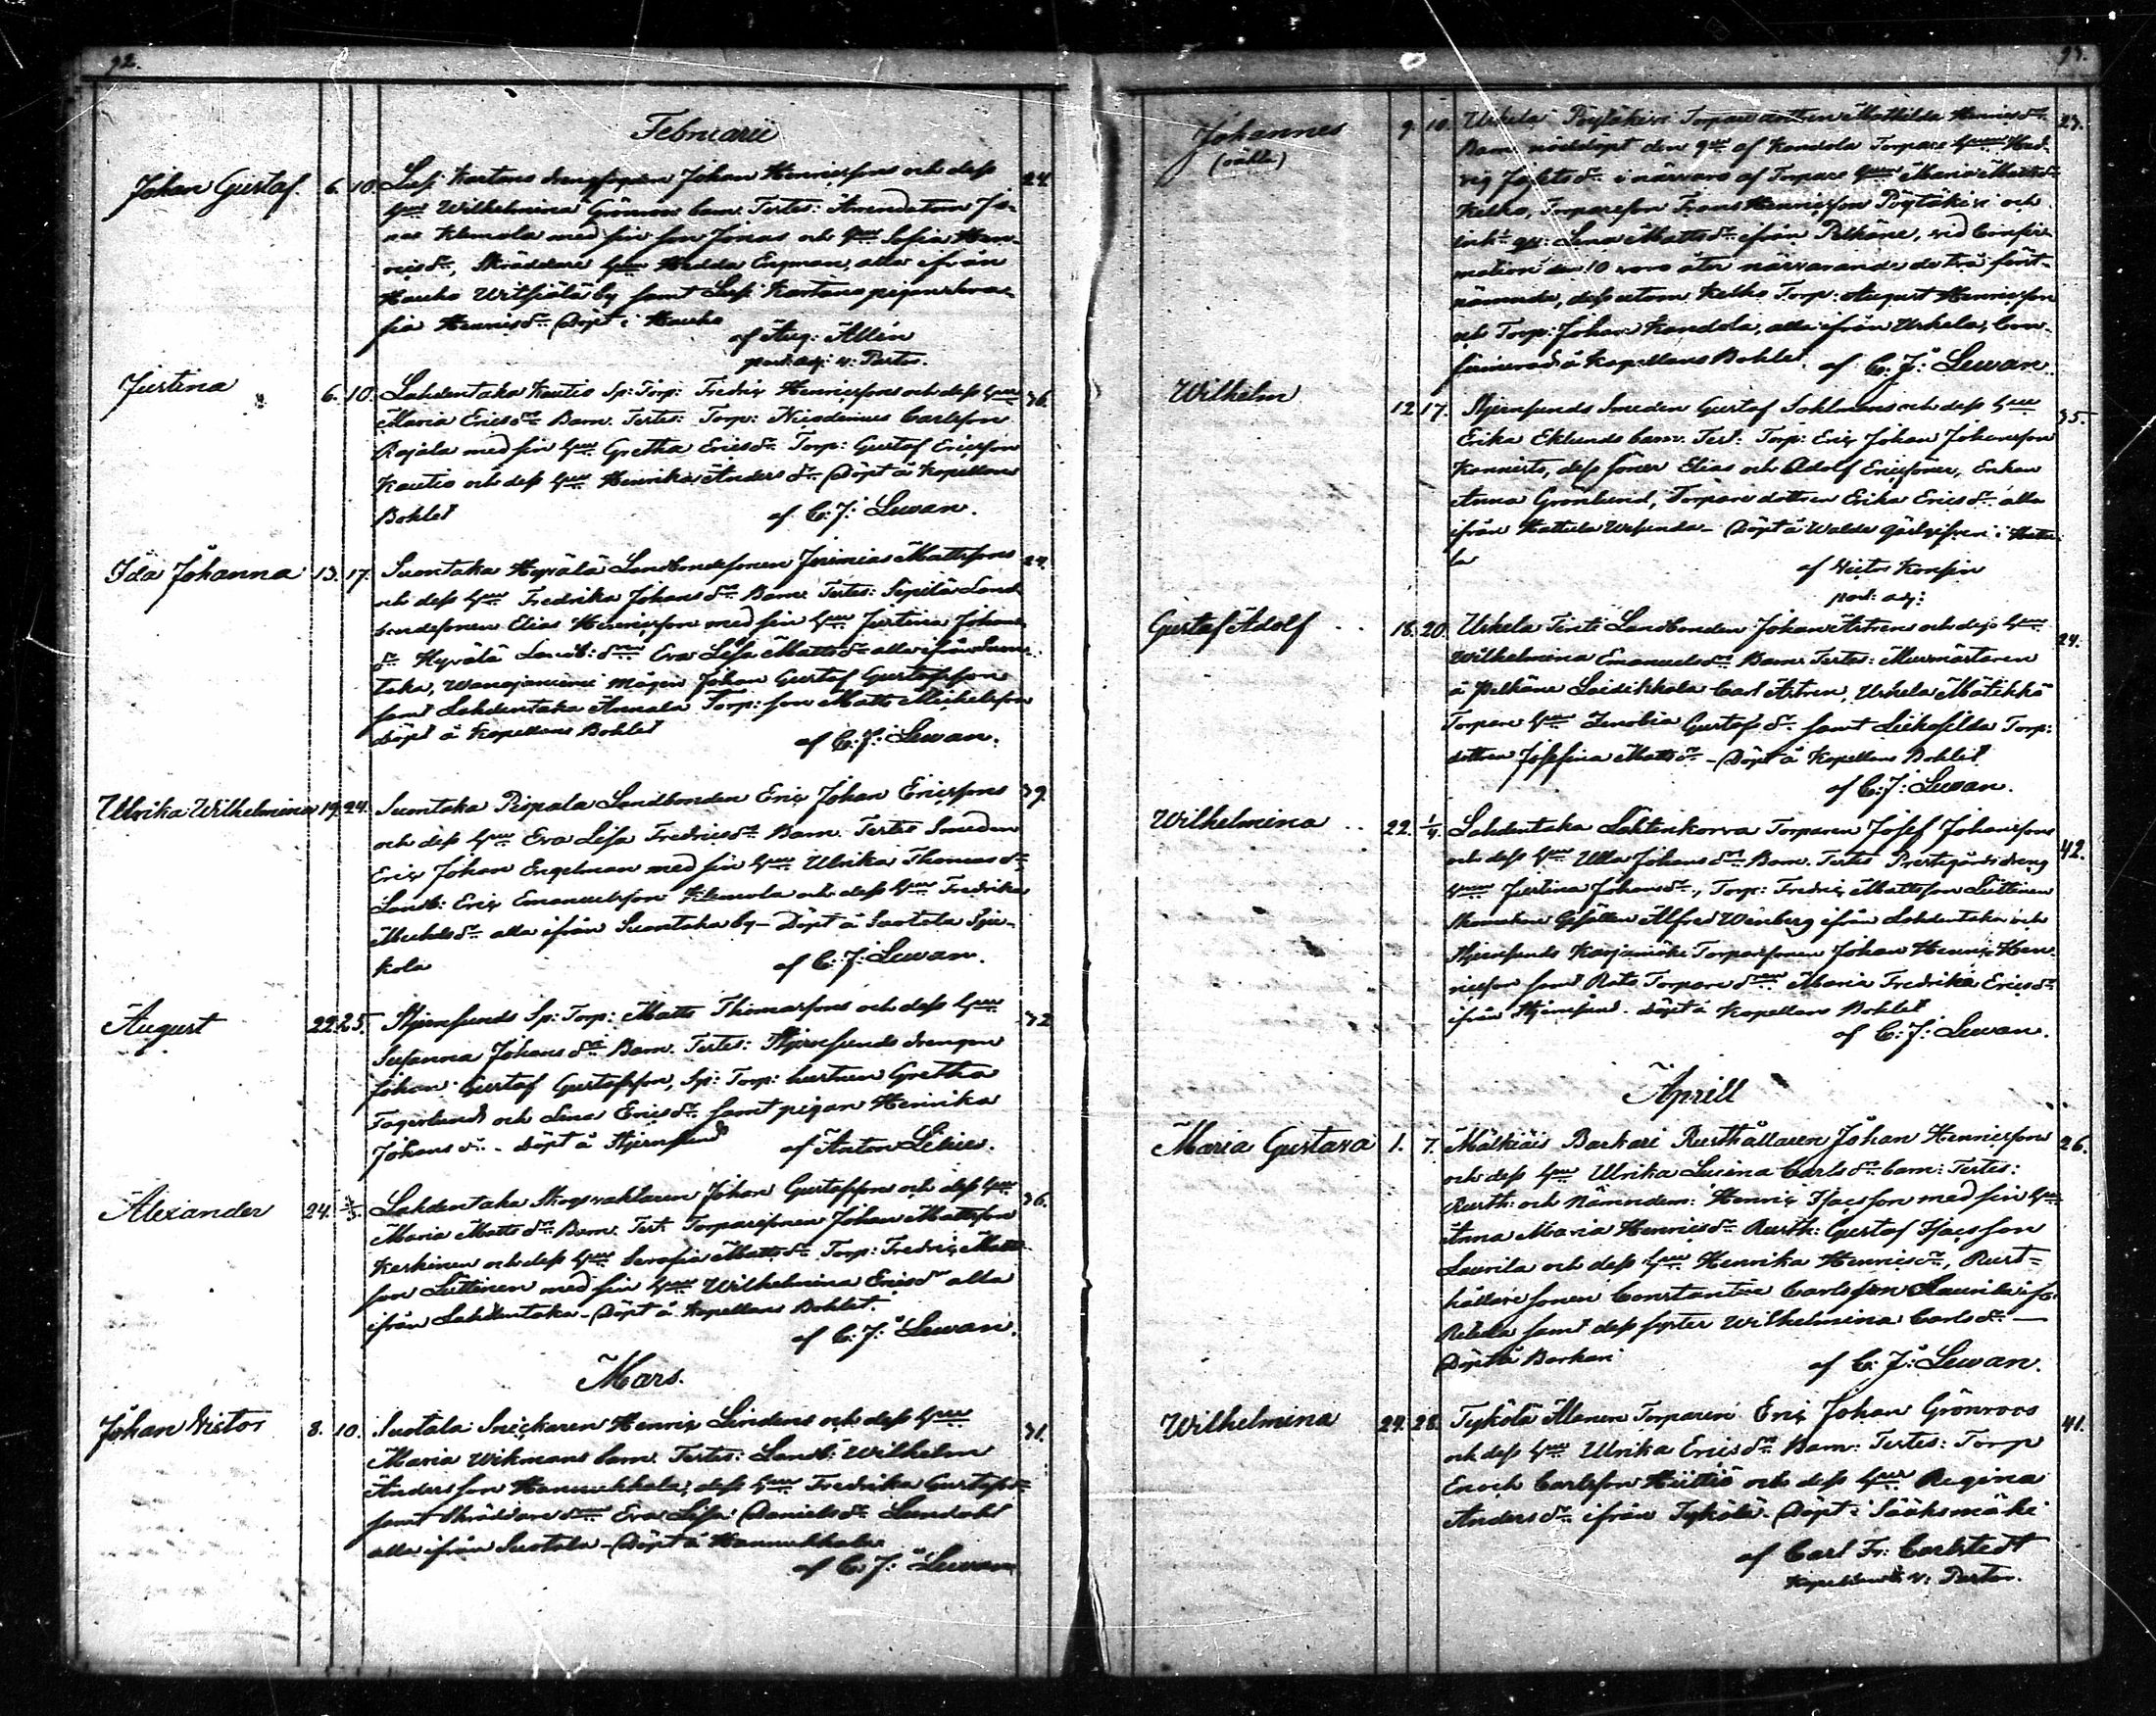 92.
Februarii
Johan Gustaf. 6. 10. Kartano Johan Henricssons och dess 24.
Hru Wilhelmina Grönroos barn. Testes: Arrendatorn Jo-
nas Klemola med sin son Jonas och Hru Sofia Hen-
ricsdr, Skräddare Hru Hedda Engman, alla ifrån
Hauho by samt Kartano pigan
Henricsdr Döpt i Hauho
af Aug: Allén
past: adj: v: Pastor.
Justina 6. 10. Lahdentaka Kautio Sp: Torp: Fredric Henricssons och dess Hru 36.
Maria Ericsdrs Barn. Testes: Torp: Nicodemus Carlsson
Rajala med sin Hru Gretha Ericsdr Torp: Gustaf Ericsson
Kautio och dess Hru Henrika Andersdr Döpt å Kapellans
Bohlet af C: J: Lewan.
Ida Johanna 13. 17. Suontaka Hyrälä Landbondesonen Jeremias Mattssons 24.
och dess Hru Fredrika Johansdrs Barn. Testes: Seppilä Land-
bondesonen Elias Henricsson med sin Hru Justina Johans-
dr Hyrälä Landb: Eva Lisa Mattsdr alla ifrån Suon-
taka, Wanajaniemi mågen Johan Gustaf Gustafsson
samt Lahdentaka Annala Torp: son Matts Michelsson
Döpt å Kapellans Bohlet af C: J: Lewan.
Ulrika Wilhelmina 19. 24. Suontaka Landbonden Eric Johan Ericssons 39.
och dess Hru Eva Lisa Fredricsdrs Barn. Testes Smeden
Eric Johan Engelman med sin Hru Ulrika Thomasdr
Landb: Eric Emanuelsson Klemola och dess Hru Fredrika
Michelsdr alla ifrån Suontaka by – Döpt å Suotala
kola af C: J: Lewan.
August 22. 25. Stjernsunds Sp: Torp: Matts Thomassons och dess Hru 32
Susanna Johansdrs Barn. Testes: Stjernsunds drengen
Johan Gustaf Gustafsson, Sp: Torp: hustrun Gretha
Fagerlund och Lena Ericsdr samt pigan Henrika
Johansdr. – döpt å Stjernsund af Anton Lilius.
Alexander 24. 3/3. Lahdentaka Skogsvaktaren Johan Gustafsson och dess Hru 36.
Maria Mattsdrs Barn. Test. Torparesonen Johan Mattsson
Keskinen och dess Hru Serafia Mattsdr Torp: Fredric Matts-
son Luttinen med sin Hru Wilhelmina Ericsdr alla
ifrån Lahdentaka – Döpt å Kapellans Bohlet.
af C: J: Lewan.
Mars.
Johan Victor 8. 10. Suotala Snickaren Henric Lindens och dess Hru 31.
Maria Wikmans barn. Testes: Landb: Wilhelm
Andersson Hannukkala, dess Hru Fredrika Gustafsdr
samt Skräddare Eva Lisa Danielsdr Lundahl
alla ifrån Suotala – Döpt å Hannukkala
af C: J: Lewan
93.
Johannes 9. 10. Uskela Pöytäkivi Torparedottren Mathilda Henricsdrs 23.
(oäkta) Barn nöddöpt den 9de af Kandola Torpare Hrun Hed-
vig i närvaro af Torpare Hrun Maria Mattsdr
Kelho, Torpareson Frans Henricsson Pöytäkivi och
Lena Mattsdr ifrån Pelkäne, vid Confir-
mation den 10 voro åter närvarande de två först-
nämnda, dessutom Kelho Torp: August Henricsson
och Torp: Johan Kandola, alla ifrån Uskela, Con-
firmerad å Kapellans Bohlet. af C: J: Lewan.
Wilhelm 12. 17. Stjernsunds Smeden Gustaf Sohlmans och dess Hru 35.
Erika Eklunds barn. Test: Torp: Eric Johan Johansson
Kannisto, dess söner Elias och Adolf Ericssöner, Enkan
Anna Grönlund, Torpare dottren Erika Ericsdr alla
ifrån Hattula Wesunda – Döpt å Walde gästgifveri i Hattu-
la af Victor Konsin
past: adj:
Gustaf Adolf . . 18. 20. Uskela Tinti Landbonden Johan Astren och dess Hru 24.
Wilhelmina Emanuelsdrs Barn. Testes: Murmästaren
å Pelkäne Laidikkala Carl Astren, Uskela Mätikkö
Torpare Hru Zenobia Gustafsdr samt Torp:
dottren Josefina Mattsdr – Döpt å Kapellans Bohlet
af C: J: Lewan.
Wilhelmina . . 22. 1/4. Lahdentaka Lähteenkorva Torparen Josef Johanssons 42.
och dess Hru Ulla Johansdrs Barn. Testes Prestgårds dreng
Hrun Justina Johansdr, Torp: Fredric Mattsson Luttinen
Skomakare Gesällen Alfred Wenberg ifrån Lahdentaka och
Stjernsunds Karjamäki Torparesonen Johan Henric Hen-
ricsson samt Rato Torpare Maria Fredrika Ericsdr
ifrån Stjernsund. döpt å Kapellans Bohlet
af C: J: Lewan.
Aprill
Maria Gustava 1. 7. Mälkiäis Barkari Rusthållaren Johan Henricssons 26.
och dess Hru Ulrika Lucina Carlsdrs barn: Testes:
Rusth: och Nämndem: Henric Isacsson med sin Hru
Anna Maria Henricsdr Rusth: Gustaf Isacsson
Laurila och dess Hru Henrika Henricsdr, Rust-
hållaresonen Constantin Carlsson
Retula samt dess syster Wilhelmina Carlsdr —
Döpt å Barkari af C: J: Lewan.
Wilhelmina 24. 28. Tykölä Torparen Eric Johan Grönroos 41.
och dess Hru Ulrika Ericsdrs Barn: Testes: Torp
Enoch Carlsson och dess Hru Regina
Andersdr ifrån Tykölä. Döpt i Sääksmäki
af Carl Fr: Carlstedt
v: Pastor.